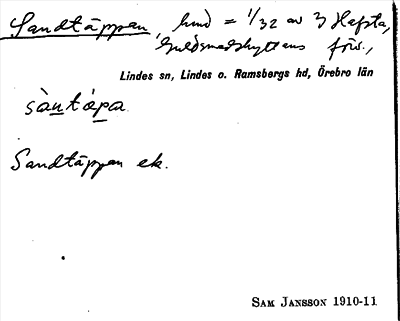 Sandtäppan, hmd = 1/32 av 3 Hafsta,
Guldsmedshyttans förs.,
Lindes sn, Lindes o. Ramsbergs hd, Örebro län
sàntápa
Sandtäppan ek.
SAM JANSSON 1910-11